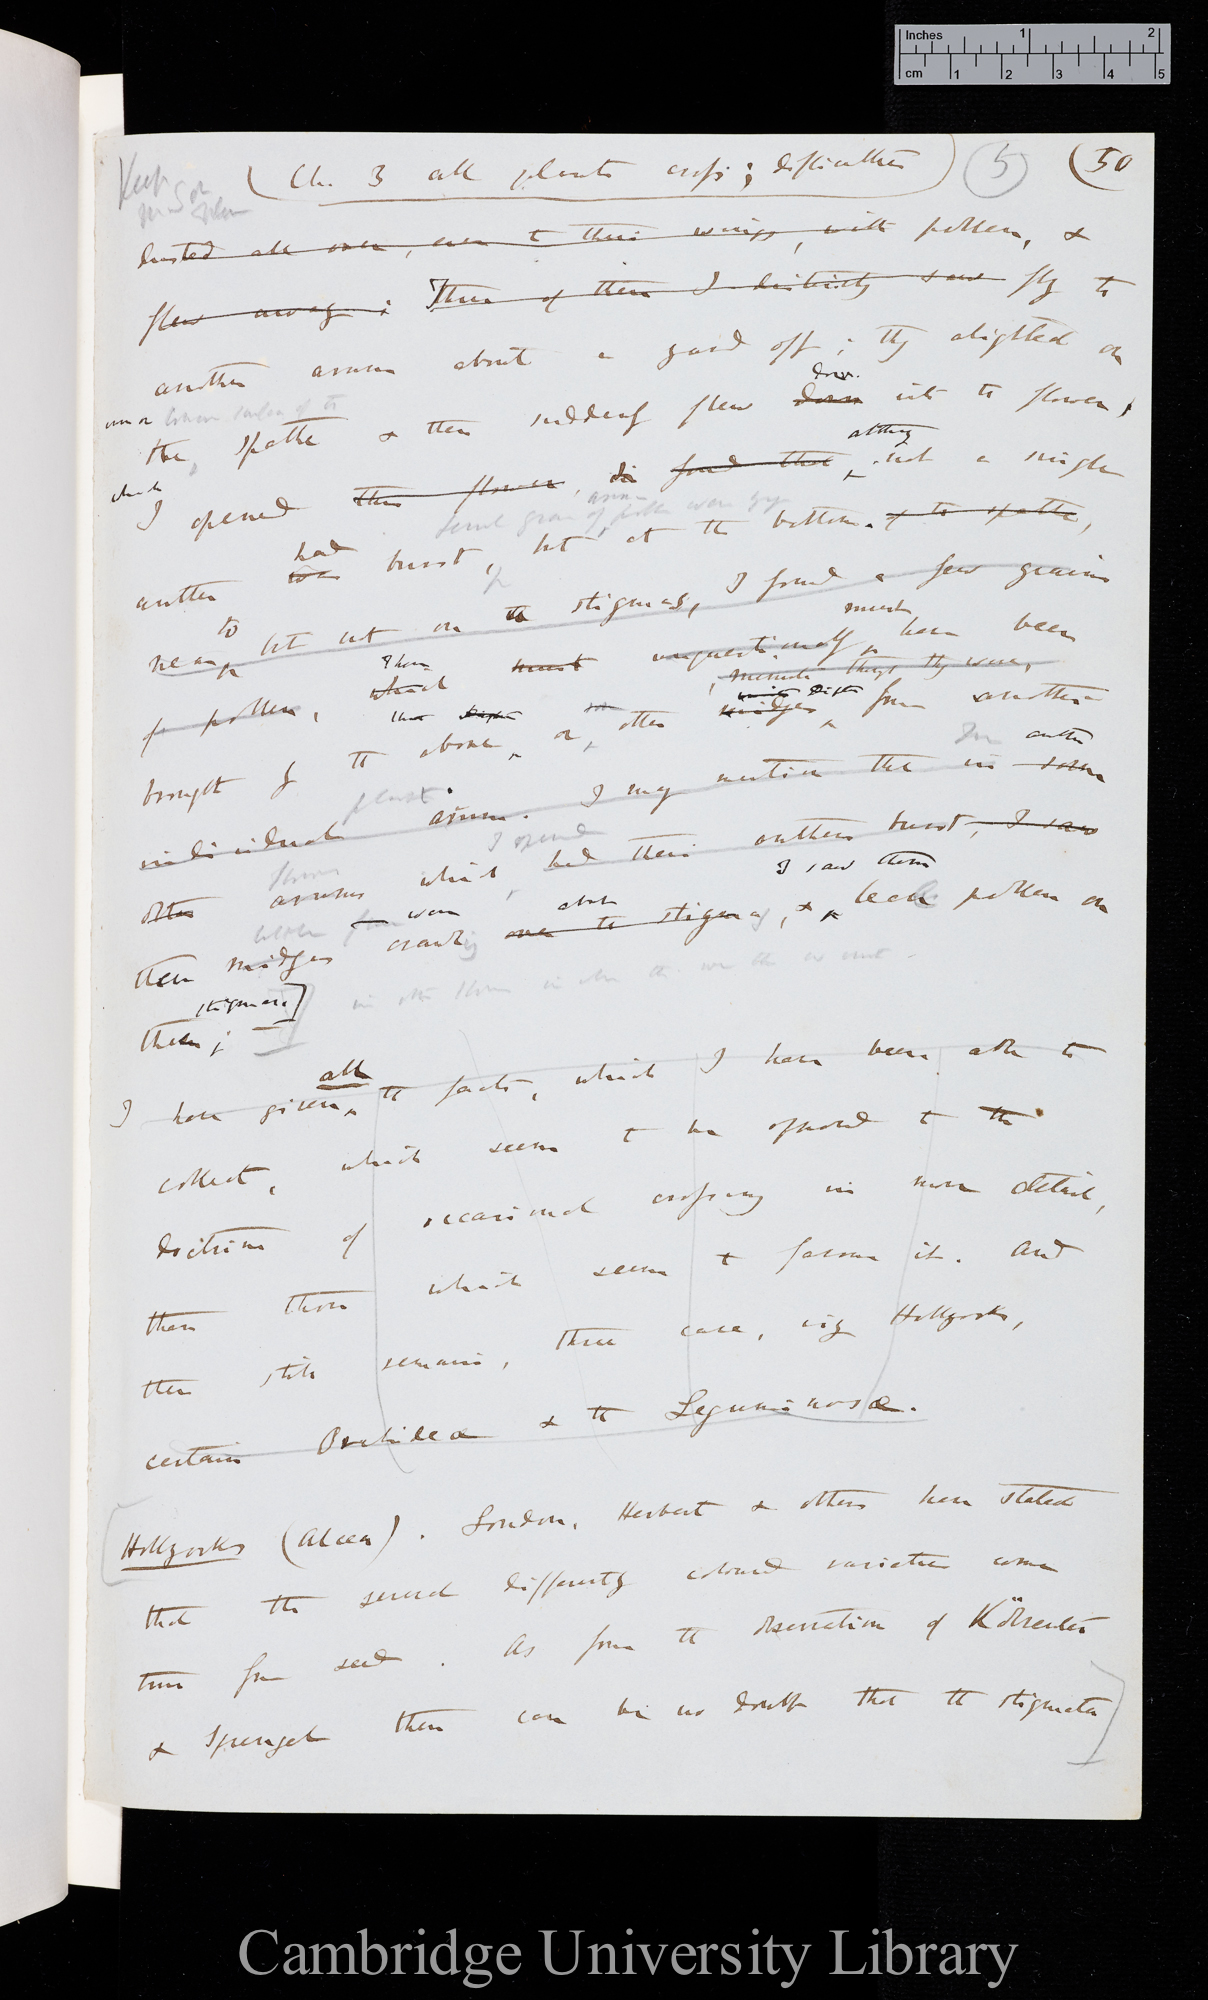 Inches 1 2
cm 1 2 3 4 5
Keep
(Ch. 3 all plants cross; difficulties) 5 (50
dusted all over, even to their wings, with pollen, &
flew away; Three of them I distinctly saw fly to
another arum about a yard off; they alighted on
down
lower surface of the
the, spathe & then suddenly flew down into the flower,
which although
I opened this flower, & found that, not a single
arum
several grains of pollen were
had
anther was burst, but at the bottom of the spathe,
to
near, but not on the stigmas, I found a few grains
must
I have
of pollen, which must unquestionably, have been
minute though they were,
brought by the above, or, other midges, from another
another
plant
individual arum. I may mention that in some
I opened
other arums which had their anthers burst, I saw
flower
I saw them
were about
then midges crawling over the stigmas, & leave pollen on
stigmas.]
them;
all
I have given, the facts, which I have been able to
collect, which seem to be opposed to the
doctrine of occasional crossing in more detail,
than those which seem to favour it. And
there still remains, three cases, viz Hollyocks,
certain Orchideæ & the Leguminosæ.
[Hollyocks (Alcea). Loudon, Herbert & others have stated
that the several differently coloured varieties come
true from seed. As from the observation of Kölreuter
& Sprengel there can be no doubt that the stigmata]
Cambridge University Library